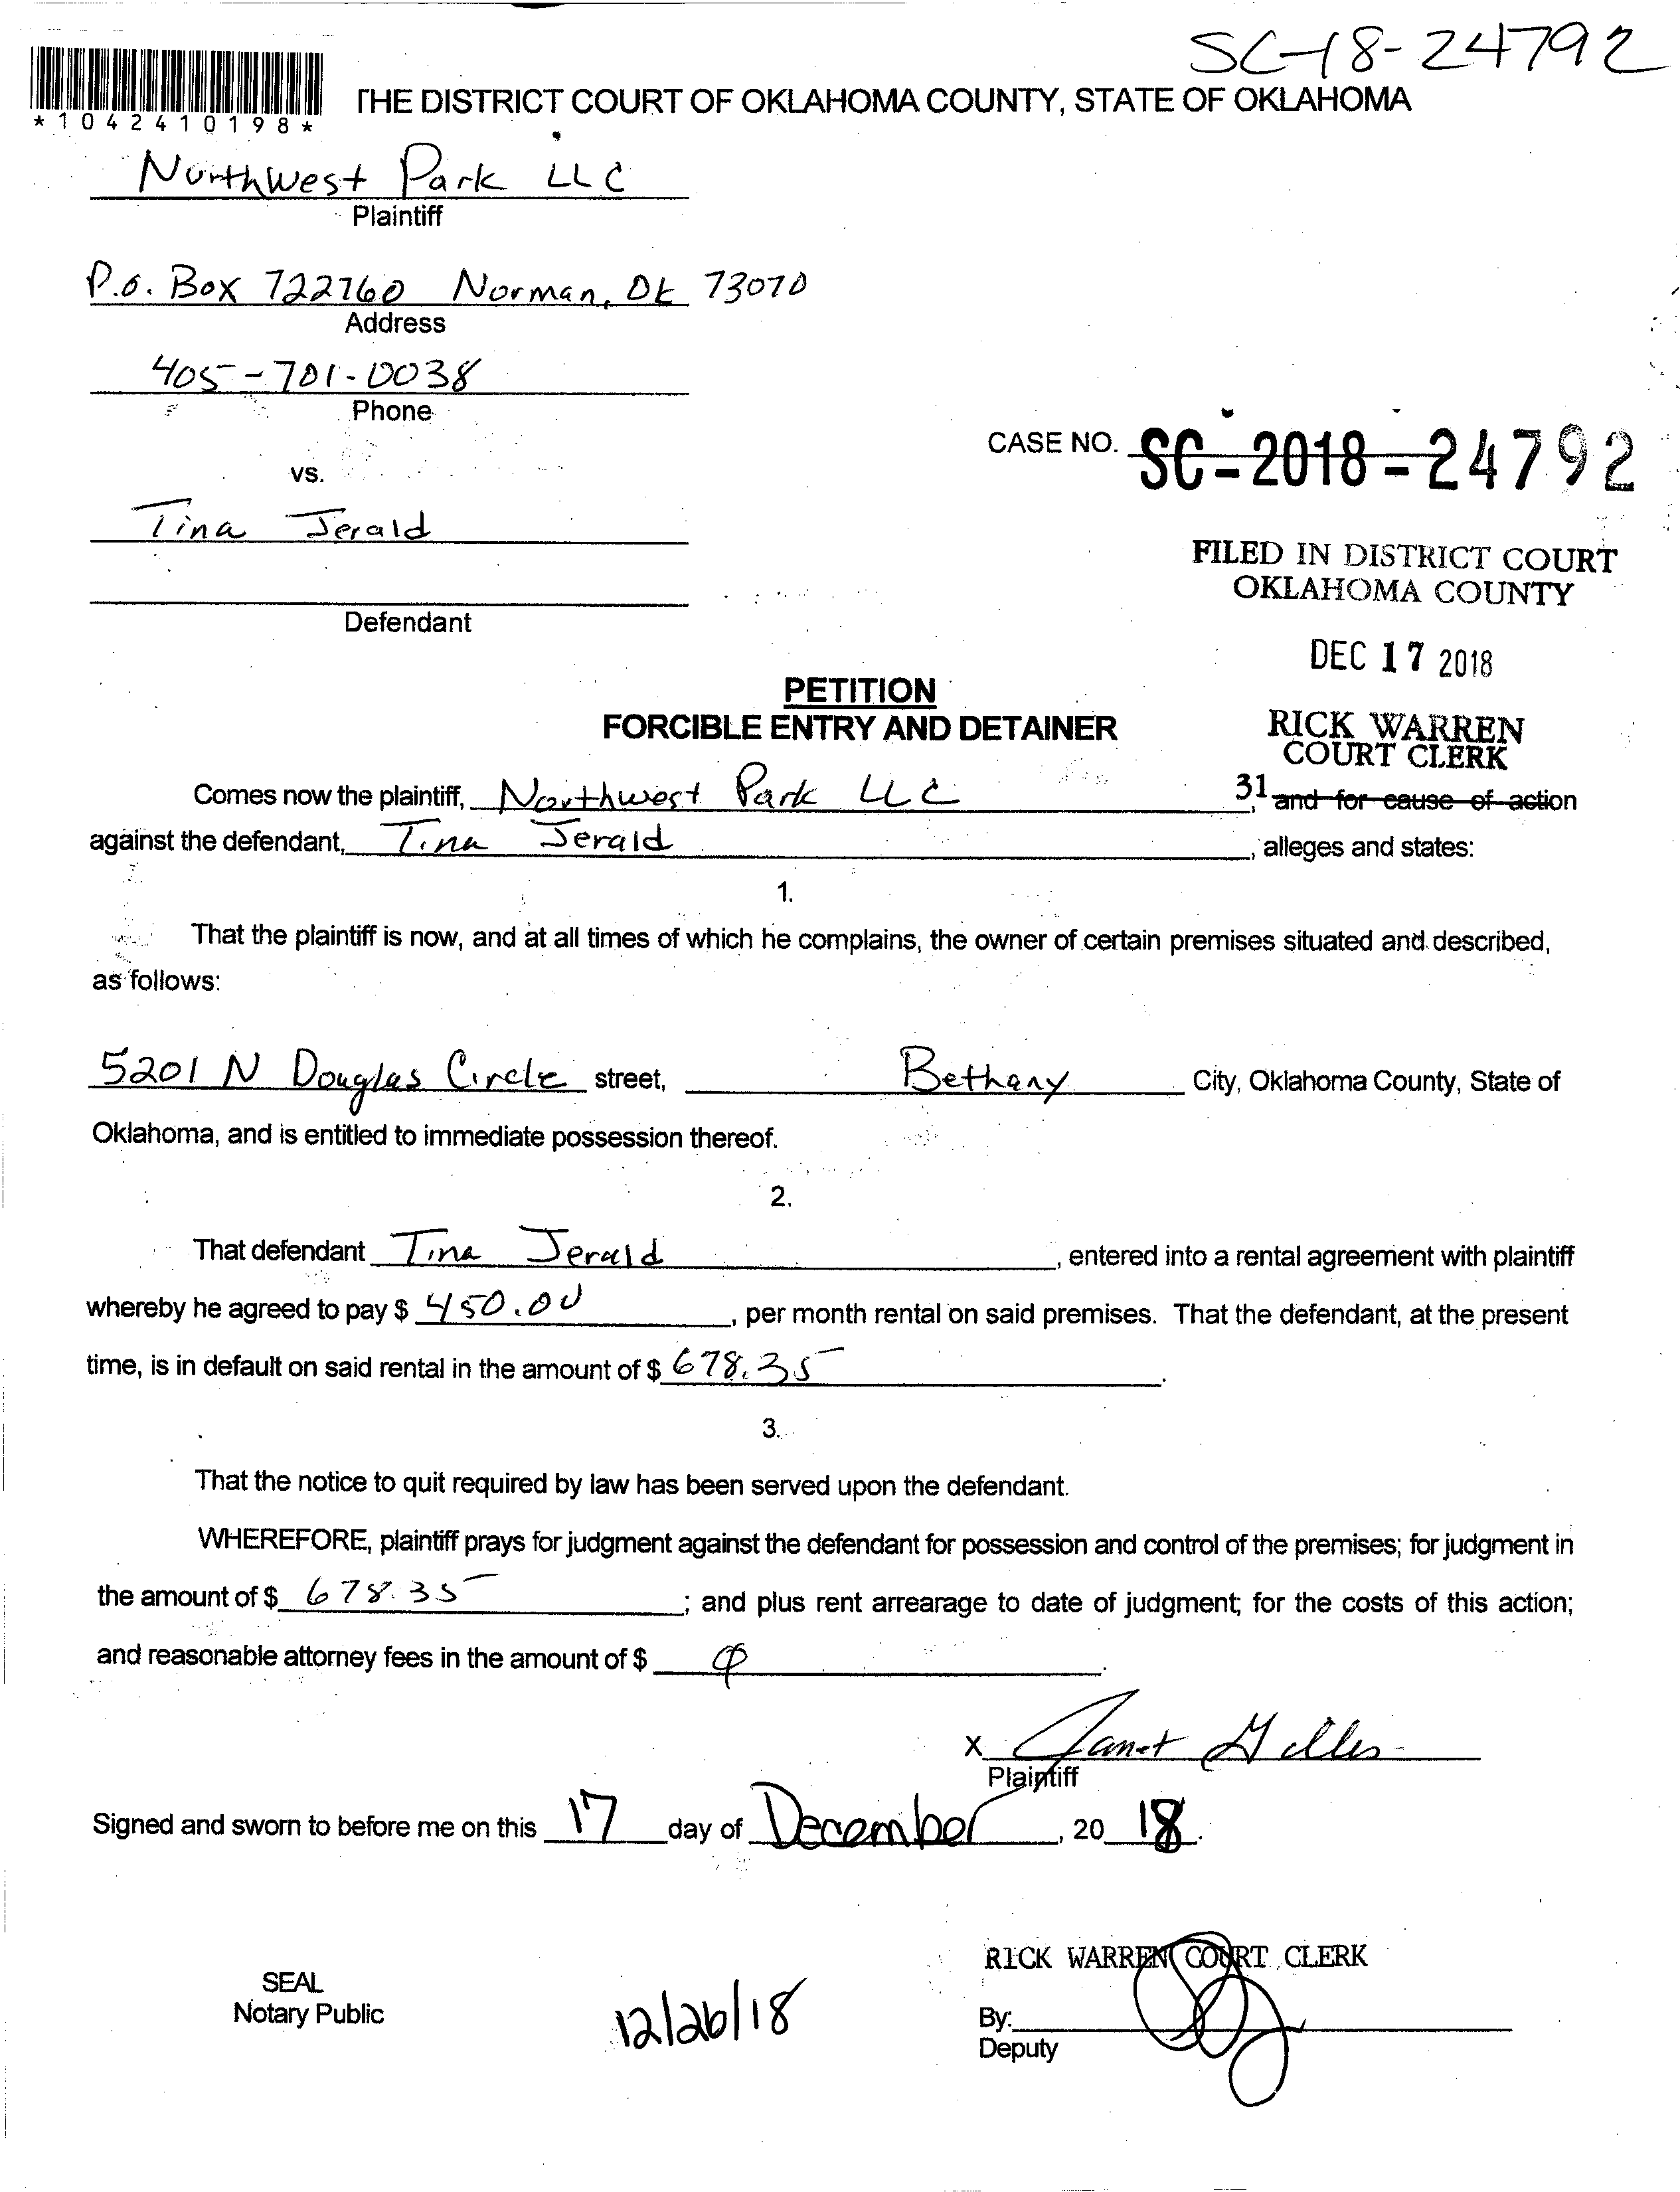 SC-18-24792
*1042410198*
THE DISTRICT COURT OF OKLAHOMA COUNTY, STATE OF OKLAHOMA
Northwest Park LLC
Plaintiff
P.O. Box 722760 Norman, OK 73070
Address
405-701-0038
Phone
CASE NO. SC-2018-24792
vs.
Tina Jerald
FILED IN DISTRICT COURT
OKLAHOMA COUNTY
Defendant
DEC 17 2018
PETITION
FORCIBLE ENTRY AND DETAINER
RICK WARREN
COURT CLERK
31
Comes now the plaintiff, Northwest Park LLC, and for cause of action
against the defendant, Tina Jerald, alleges and states:
1.
That the plaintiff is now, and at all times of which he complains, the owner of certain premises situated and described,
as follows:
5201 N Douglas Circle street, Bethany City, Oklahoma County, State of
Oklahoma, and is entitled to immediate possession thereof.
2.
That defendant Tina Jerald, entered into a rental agreement with plaintiff
whereby he agreed to pay $ 450.00, per month rental on said premises. That the defendant, at the present
time, is in default on said rental in the amount of $ 678.35.
3.
That the notice to quit required by law has been served upon the defendant.
WHEREFORE, plaintiff prays for judgment against the defendant for possession and control of the premises; for judgment in
the amount of $ 678.35; and plus rent arrearage to date of judgment; for the costs of this action;
and reasonable attorney fees in the amount of $ φ.
X Janet
Plaintiff
Signed and sworn to before me on this 17 day of December, 20 18.
RICK WARREN COURT CLERK
SEAL
Notary Public
12/26/18
By:
Deputy